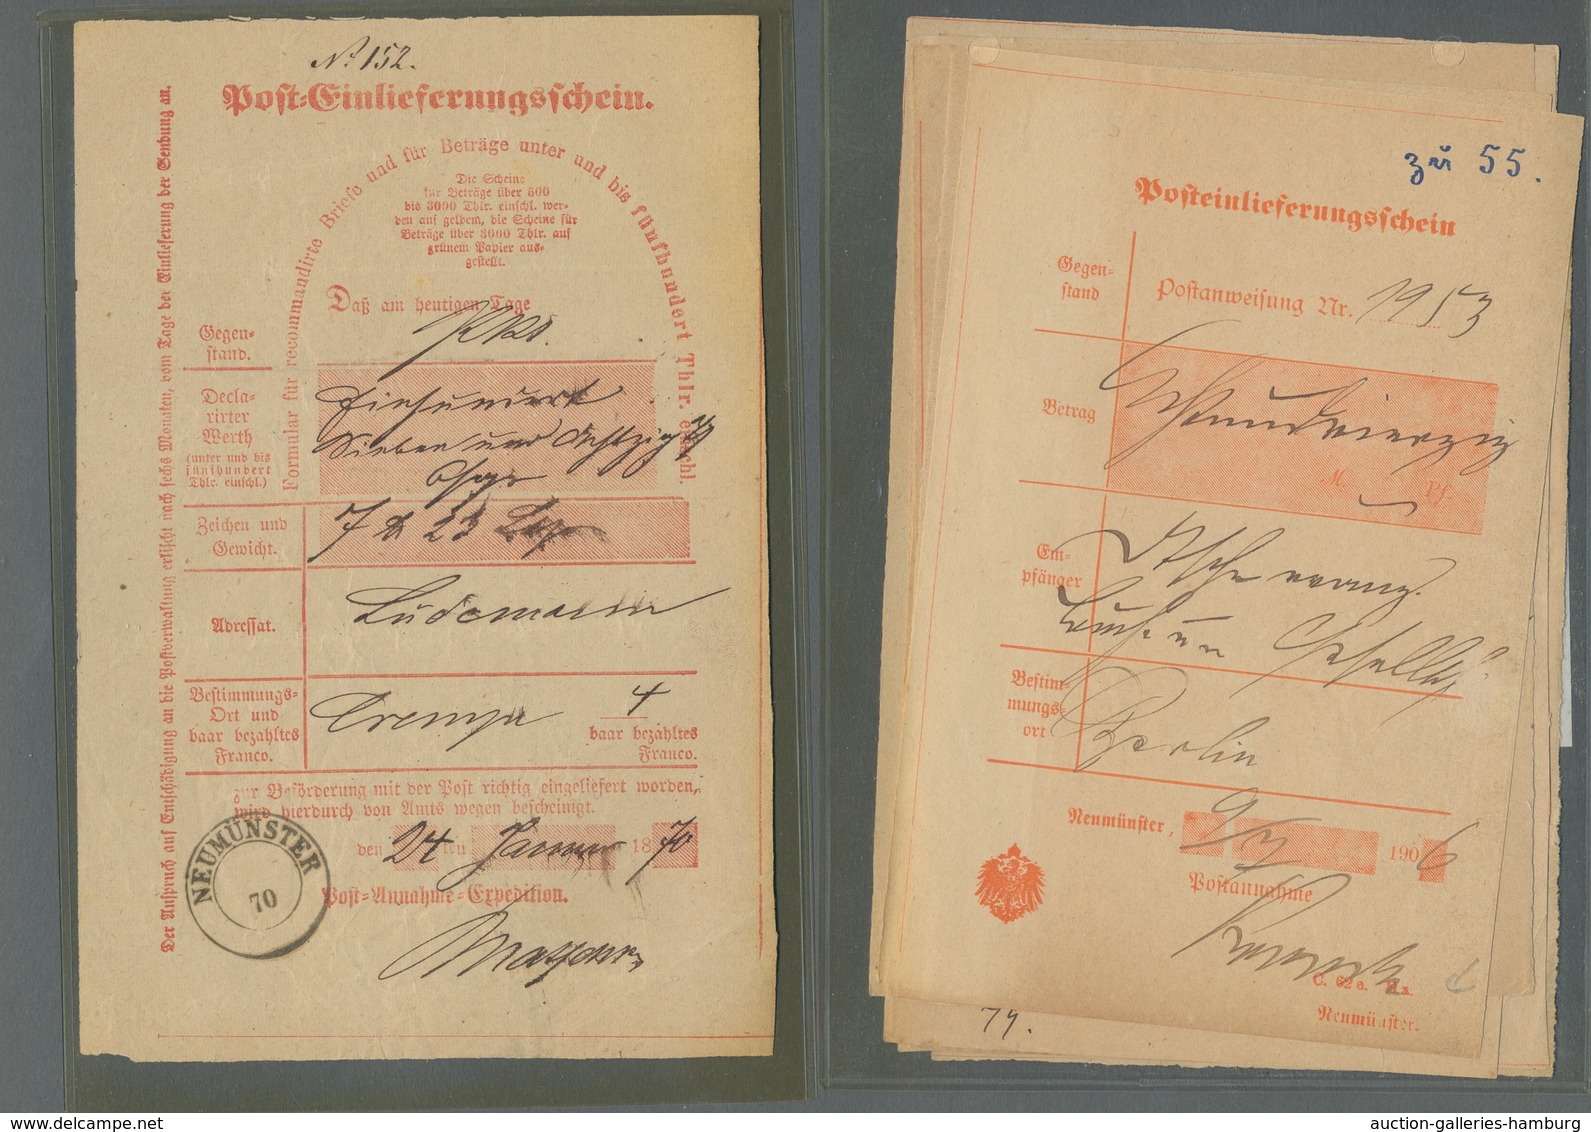 No 152.
Post-Einlieferungsschein.
Der Anspruch auf Entschädigung an die Postverwaltung erlischt nach sechs Monaten, vom Tage der Einlieferung der Sendung an.
Formular für recommandirte Briefe und für Beträge unter und bis fünfhundert Thlr. einschl.
Die Scheine
für Beträge über 500
bis 3000 Thlr. einschl. wer-
den auf gelbem, die Scheine für
Beträge über 3000 Thlr. auf
grünem Papier aus-
gestellt.
Daß am heutigen Tage
Gegen-
stand.
Decla-
rirter
Werth
(unter und bis
fünfhundert
Thlr. einschl.)
Einhundert
Sieben und Achtzig
Zeichen und
Gewicht.
7 23
Adressat.
Lüdemann
Bestimmungs-
Ort und
baar bezahltes
Franco.
Krempe
4
baar bezahltes
Franco.
zur Beförderung mit der Post richtig eingeliefert worden,
wird hierdurch von Amts wegen bescheinigt.
den 24 ten Januar 1870
NEUMÜNSTER
70
Post-Annahme-Expedition.
zu 55.
Posteinlieferungsschein
Gegen-
stand
Postanweisung Nr. 1953
Betrag
M. Pf.
Em-
pfänger
Bestim-
mungs-
ort
Berlin
Neumünster, 9/7 1906
Postannahme
C. 62 e.
Neumünster.
74.
auction-galleries-hamburg